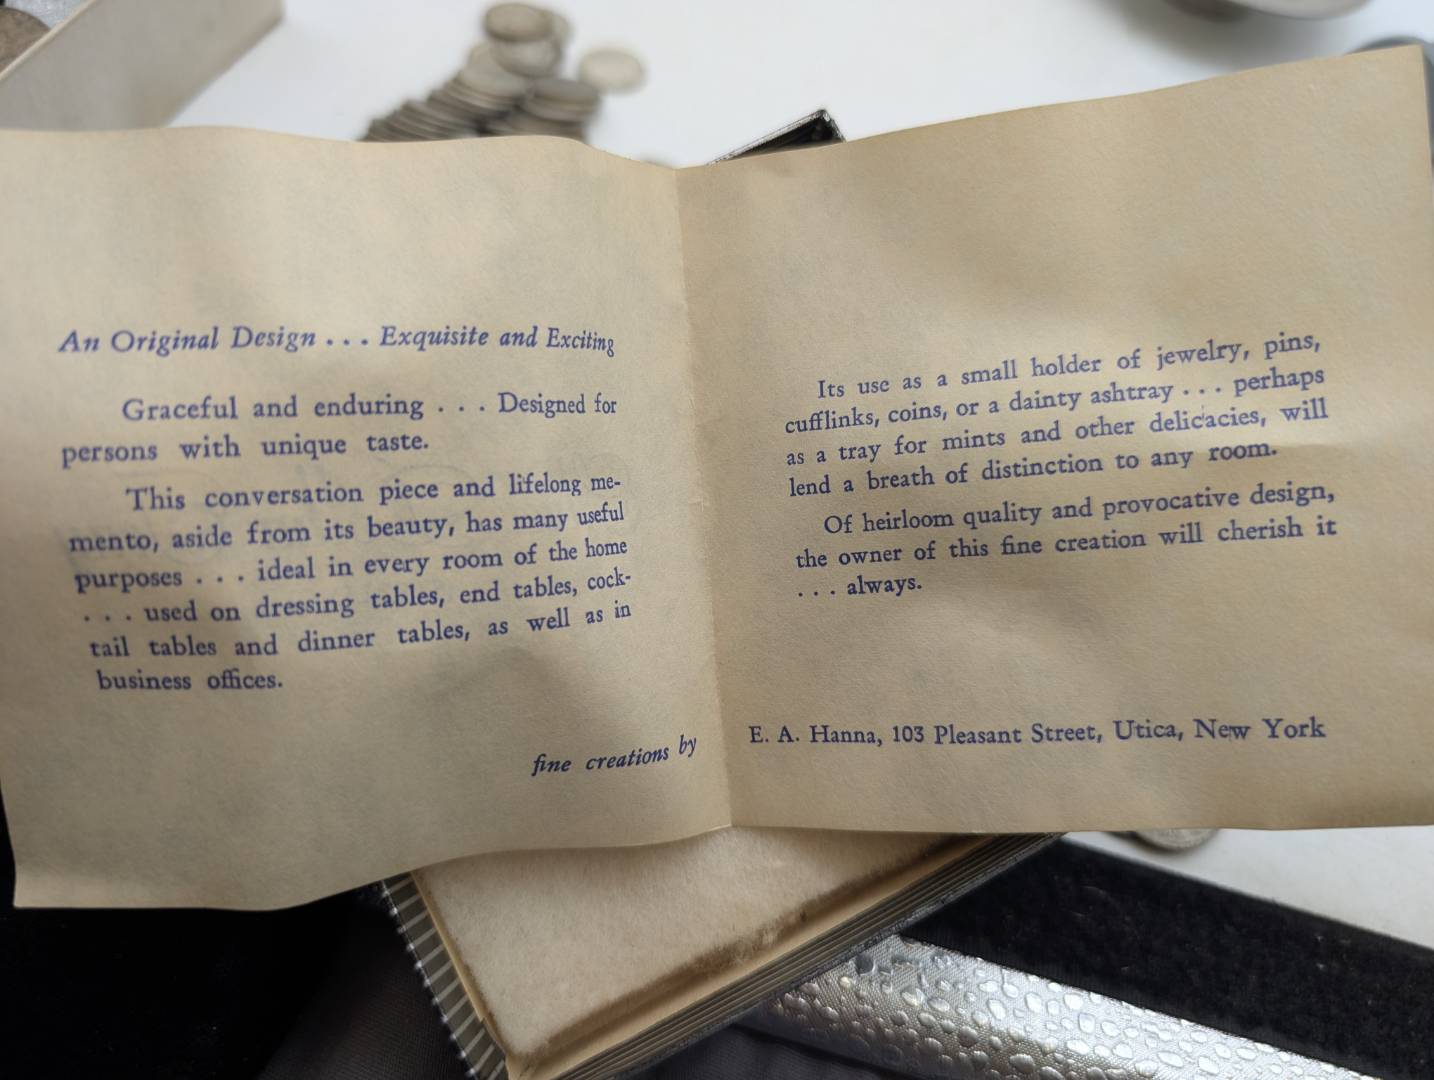 An Original Design . . . Exquisite and Exciting
Graceful and enduring . . . Designed for
persons with unique taste.
This conversation piece and lifelong me-
mento, aside from its beauty, has many useful
purposes . . . ideal in every room of the home
. . . used on dressing tables, end tables, cock-
tail tables and dinner tables, as well as in
business offices.
fine creations by
Its use as a small holder of jewelry, pins,
cufflinks, coins, or a dainty ashtray . . . perhaps
as a tray for mints and other delicacies, will
lend a breath of distinction to any room.
Of heirloom quality and provocative design,
the owner of this fine creation will cherish it
. . . always.
E. A. Hanna, 103 Pleasant Street, Utica, New York